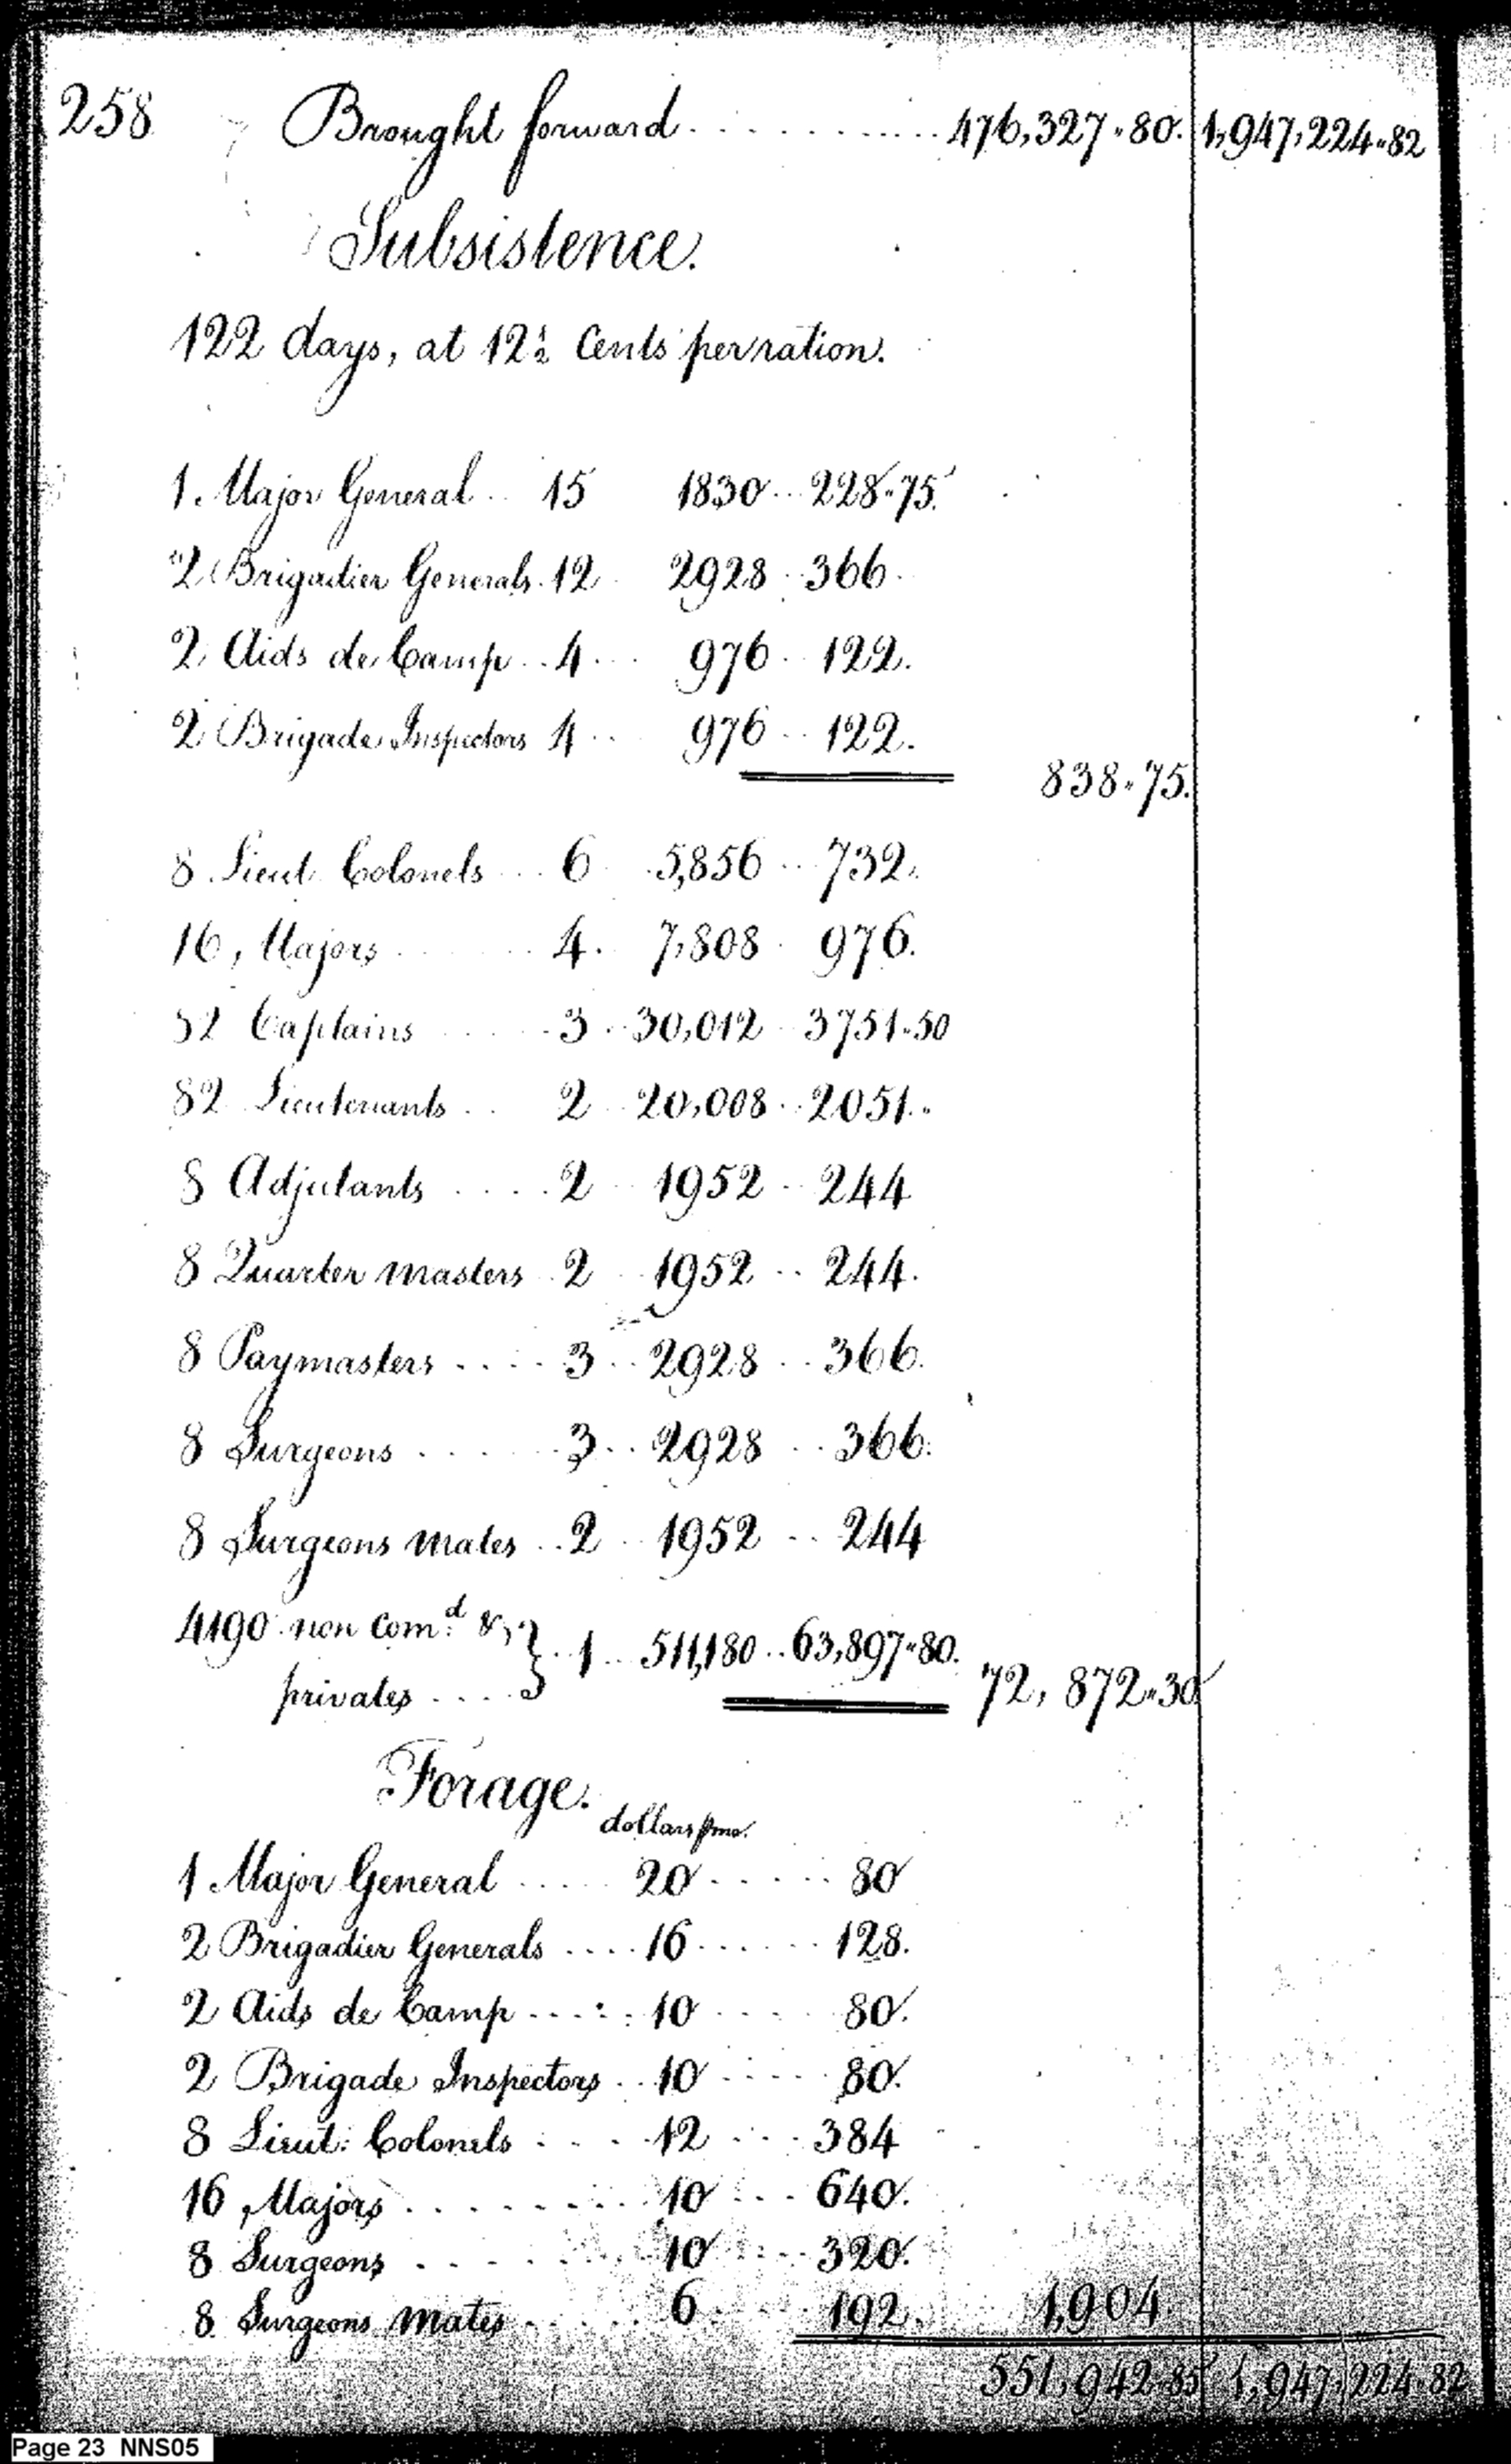 258 Brought forward. . . . . . . . . . . 476,327.80. 1,947,224.82
Subsistence.
122 days, at 12½ Cents per ration.
1. Major General .. 15 1830 ... 228.75.
2 Brigadier Generals. 12 2928 .. 366.
2 Aids de Camp .. 4 ... 976 .. 122.
2 Brigade Inspectors 4 ... 976 ... 122.
838.75.
8 Lieut. Colonels ... 6 5,856 ... 732.
16, Majors ...... 4. 7,808 . 976.
52 Captains ...... 3 .. 30,012 .. 3751.50
82 Lieutenants .. 2 20,008 .. 2051..
8 Adjutants ..... 2 1952 .. 244
8 Quarter masters 2 1952 .. 244.
8 Paymasters .... 3 .. 2928 .. 366.
8 Surgeons ..... 3 .. 2928 .. 366.
8 Surgeons mates .. 2 .. 1952 .. 244
4190 non com.d & } . 1 .. 511,180 .. 63,897.80.
privates ....
72,872.30
Forage.
dollars p mo.
1 Major General ..... 20 ...... 80
2 Brigadier Generals .... 16 ...... 128.
2 Aids de Camp ...:. 10 .... 80.
2 Brigade Inspectors .. 10 ..... 80.
8 Lieut: Colonels .... 12 ... 384
16, Majors ......... 10 ... 640.
8 Surgeons ....... 10 .... 320.
8 Surgeons Mates ..... 6 .... 192. 1,904.
551,942.85 1,947,224.82
Page 23 NNS05